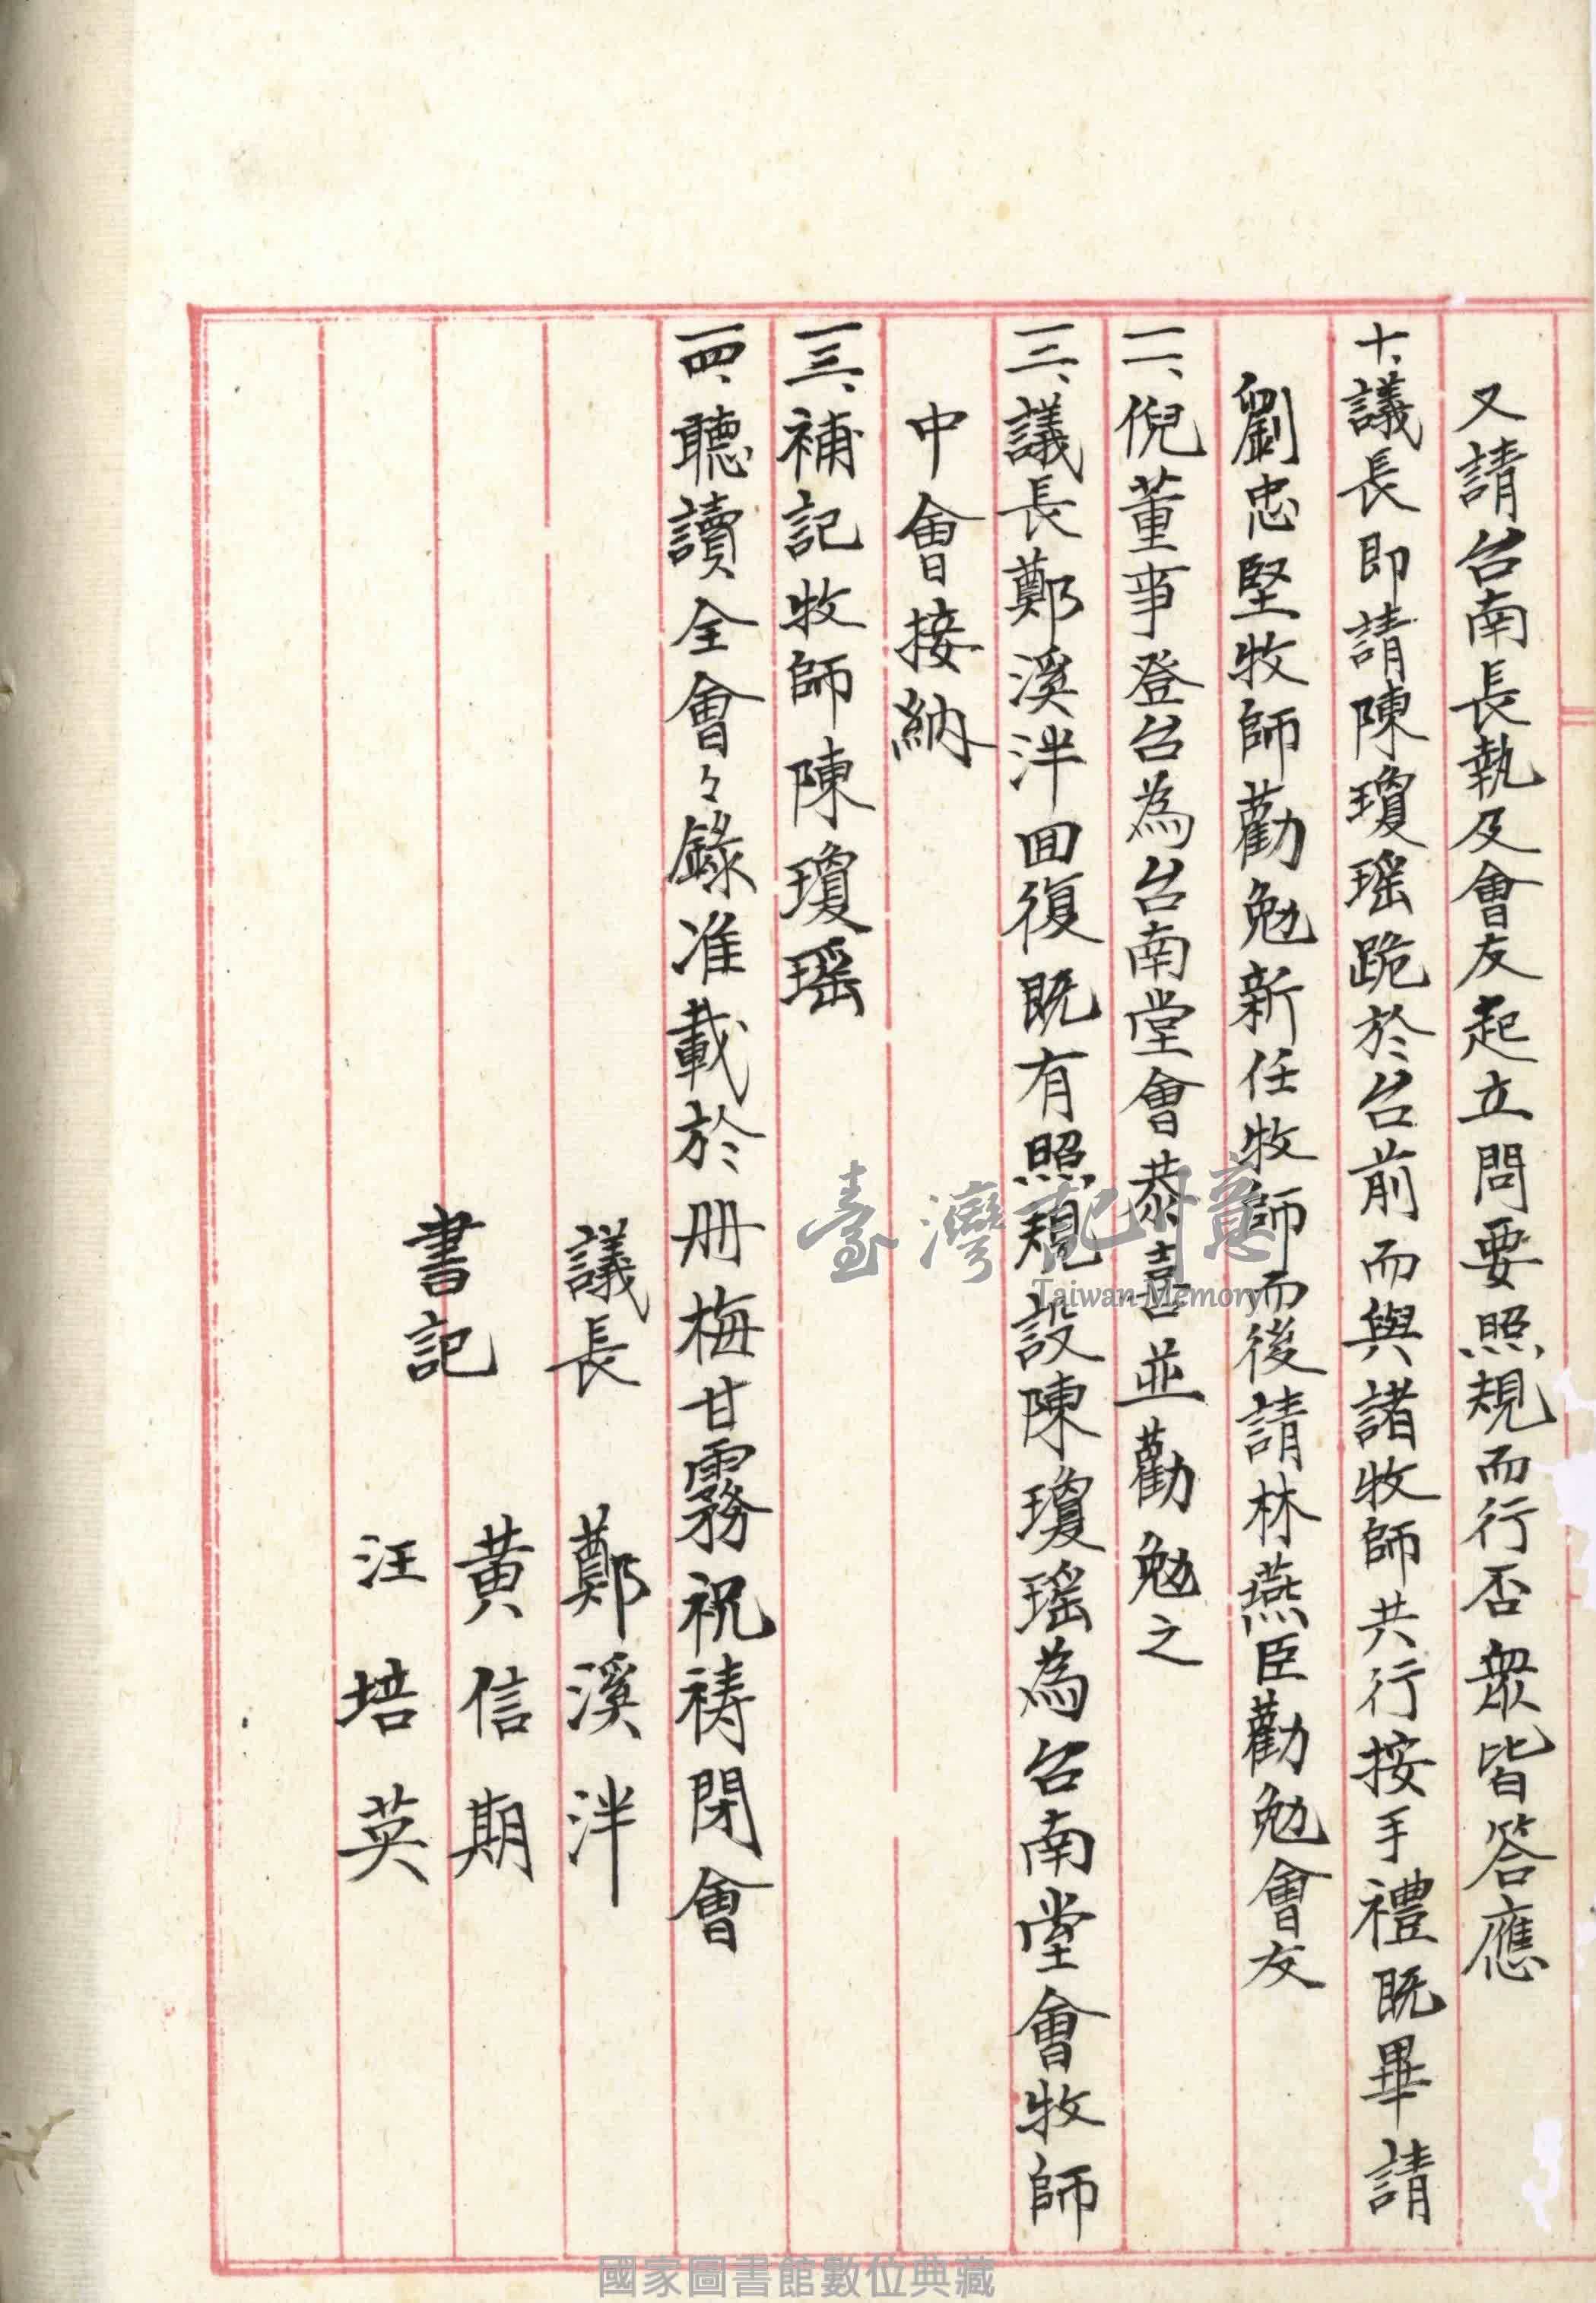 又請台南長執及會友起立問要照規而行否眾皆答應
十、議長即請陳瓊瑶跪於台前而與諸牧師共行按手禮既畢請
劉忠堅牧師勸勉新任牧師而後請林燕臣勸勉會友
一一、倪董事登台為台南堂會恭喜並勸勉之
一二、議長鄭溪泮回復既有照規設陳瓊瑶為台南堂會牧師
中會接納
一三、補記牧師陳瓊瑶
一四、聽讀全會々錄准載於册梅甘霧祝祷閉會
議長 鄭溪泮
書記 黄信期
汪培英
臺灣記憶
Taiwan Memory
國家圖書館數位典藏